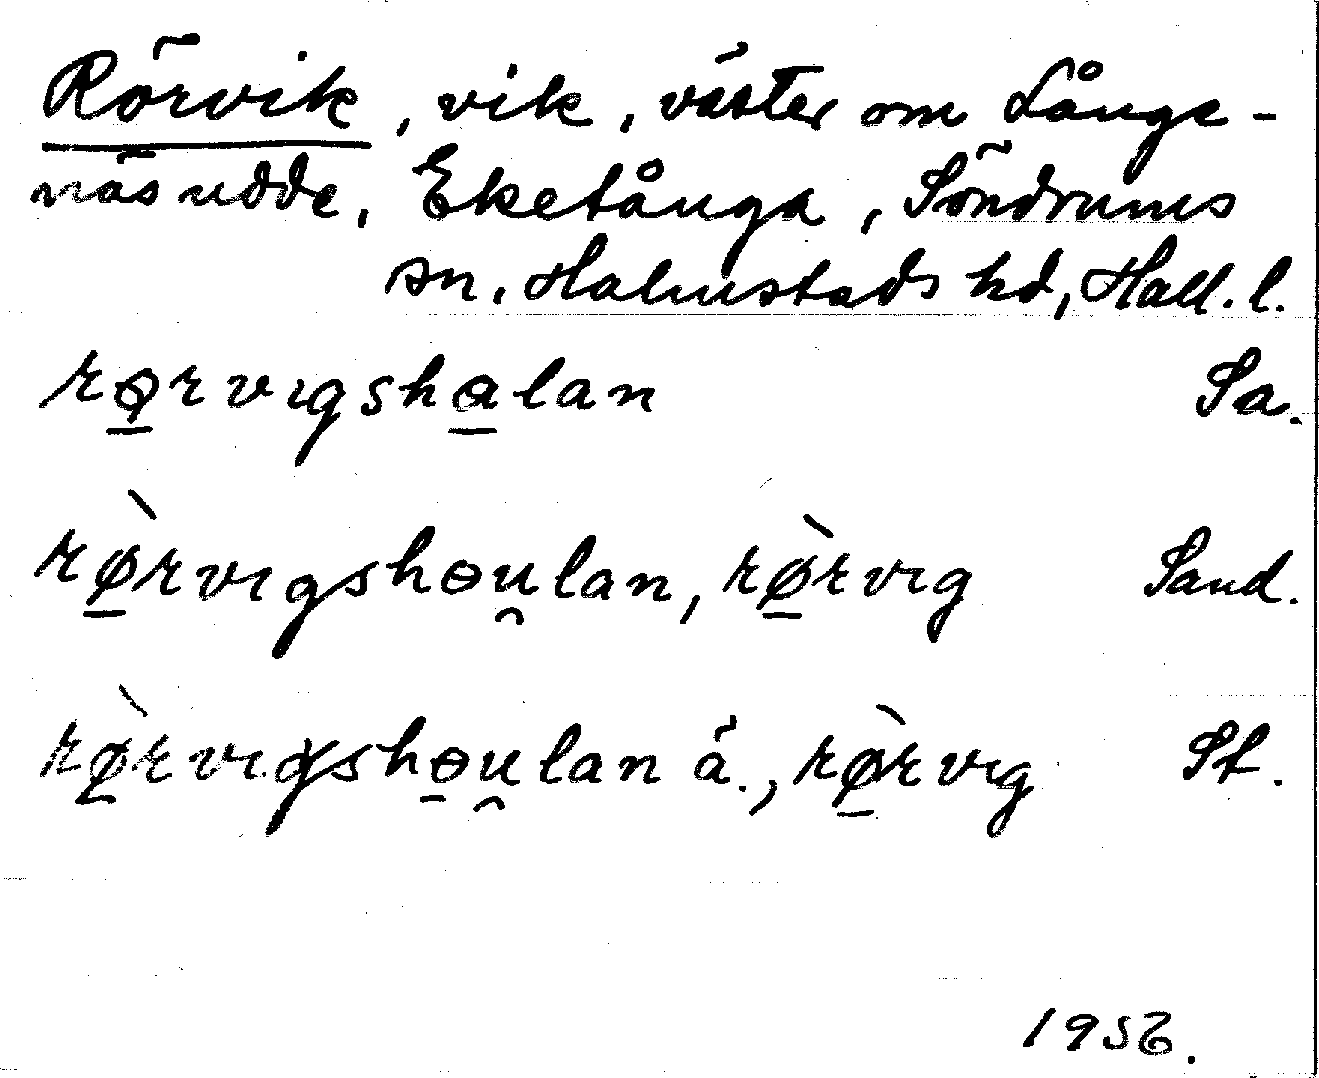 Rörvik, vik, väster om Långe-
näs udde, Eketånga, Söndrums
sn. Halmstads hd, Hall. l.
rø̠rvıgshɵ̠lan Sa.
rø̠̀rvıgshɵu̯lan, rø̠̀rvıg Sand.
rø̠̀rvıgshɵ̠u̯lan ä., rø̠̀rvıg Sf.
1956.